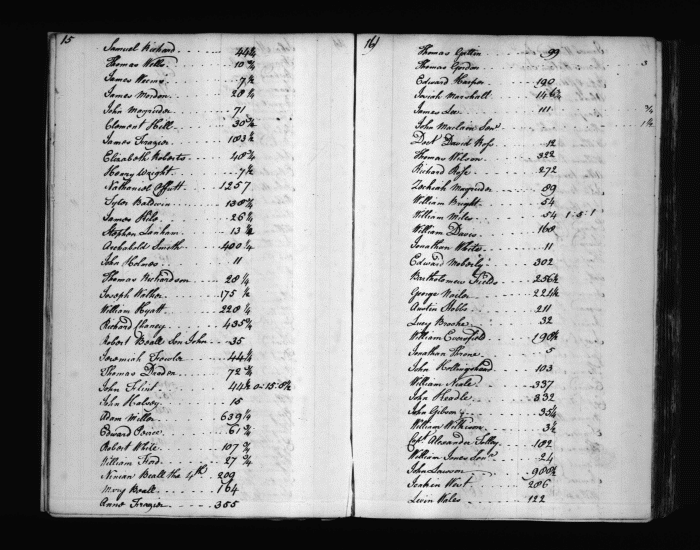 15
Samuel Richard 44¼
Thomas Wells 10¾
James Weems 7½
James Mordon 28¼
John Magruder 71
Clement Hill 30¾
James Frazier 183¼
Elizabeth Roberts 48¾
Henry Wright 7½
Nathaniel Offutt 1257
Tyler Baldwin 138¾
James Hile 26¼
Stephen Lanham 13½
Archabald Smith 400¼
John Holmes 11
Thomas Richardson 28¼
Joseph Walker 175½
William Hyatt 228¼
Richard Chaney 435¾
Robert Beall Son John 35
Jeremiah Fowler 44¼
Thomas Dradon 72¾
John Flint 44½ 0-15-8½
John Halsey 15
Adam Miller 639¼
Edward Pearce 61¾
Robert White 107¾
William Ford 27¾
Ninian Beall the 4th 209
Mary Beall 164
Anne Frazier 355
16
Thomas Gittin 99
Thomas Gordon 3
Edward Harper 190
Josiah Marshall 146¾
James Lee 111 ¾
John Maclain Senr 1¼
Doct David Ross 12
Thomas Wilson 322
Richard Ross 272
Zachiah Magruder 89
William Bright 54
William Miles 54 1-5-1
William Davis 168
Jonathan White 11
Edward Moberly 302
Bartholomew Fields 256½
George Nailor 224½
Austin Hobbs 211
Lucy Brooke 32
William Cworfield 190¾
Jonathan Throne 5
John Hollingshead 103
William Neale 337
John Readle 332
John Gibson 35¼
William Wilkerson 3½
Cot. Alexander Tolley 182
William Jones Senr 24
John Lawson 900½
Jenken West 206
Levin Wales 122